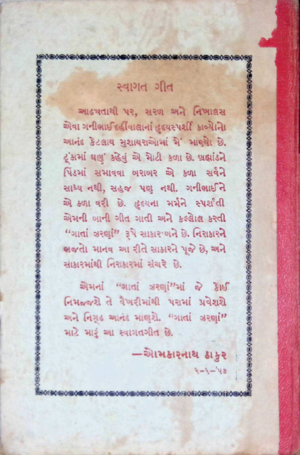 સ્વાગત ગીત
આઢ્યતાથી પર, સરળ અને નિખાલસ
એવા ગનીભાઈ દહીંવાલાનાં હૃદયસ્પર્શી કાવ્યોનો
આનંદ કેટલાય મુશાયરાઓમાં મેં માણ્યો છે.
ટૂંકામાં ઘણું કહેવું એ મોટી કળા છે. બ્રહ્માંડને
પિંડમાં સમાવવા બરાબર એ કળા સર્વને
સાધ્ય નથી, સહજ પણ નથી. ગનીભાઈને
એ કળા વરી છે. હૃદયના મર્મને સ્પર્શતી
એમની બાની ગીત ગાતી અને કલ્લોલ કરતી
“ગાતાં ઝરણાં” રૂપે સાકાર બને છે. નિરાકારને
ભજતો માનવ આ રીતે સાકારને પૂજે છે, અને
સાકારમાંથી નિરાકારમાં સંચરે છે.
એમનાં “ગાતાં ઝરણાં”માં જે કોઈ
નિમજ્જશે તે વૈખરીમાંથી પરામાં પ્રવેશશે
અને નિગૂઢ આનંદ માણશે. “ગાતાં ઝરણાં”
માટે મારું આ સ્વાગતગીત છે.
—ઓમકારનાથ ઠાકુર
૧-૬-’૫૩